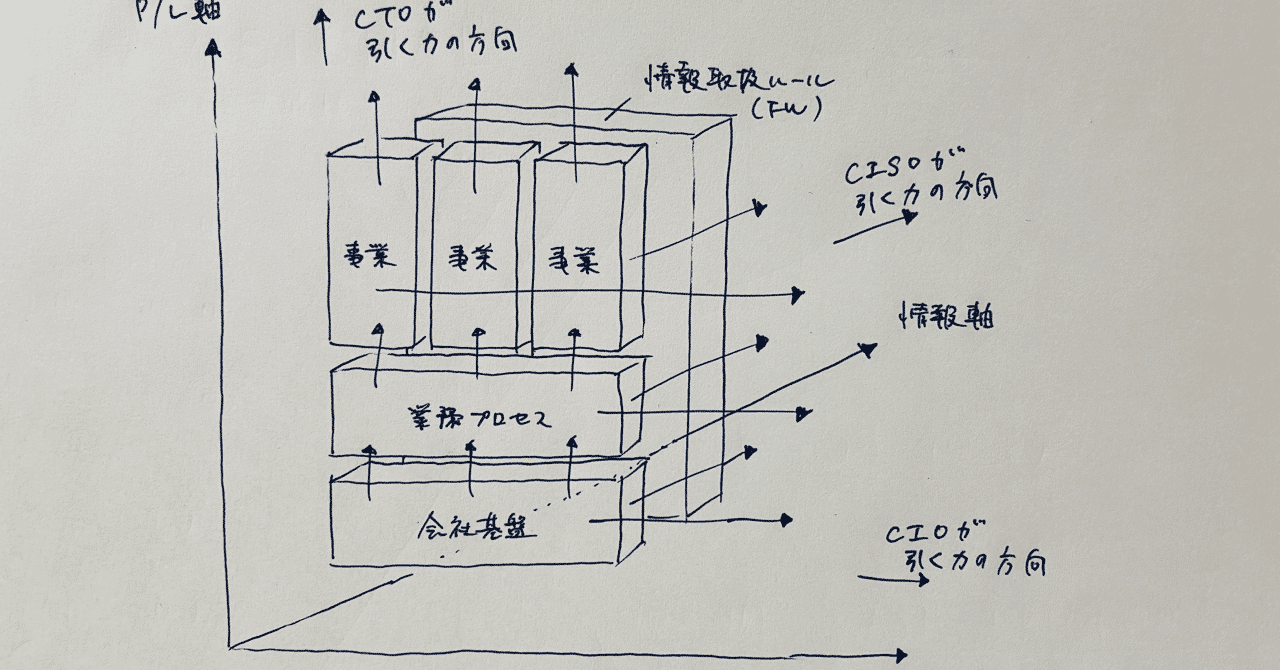 P/L 軸
CTOが
引く力の方向
情報取扱ルール
(FW)
CISOが
引く力の方向
事業
事業
事業
情報軸
業務プロセス
会社基盤
CIOが
引く力の方向